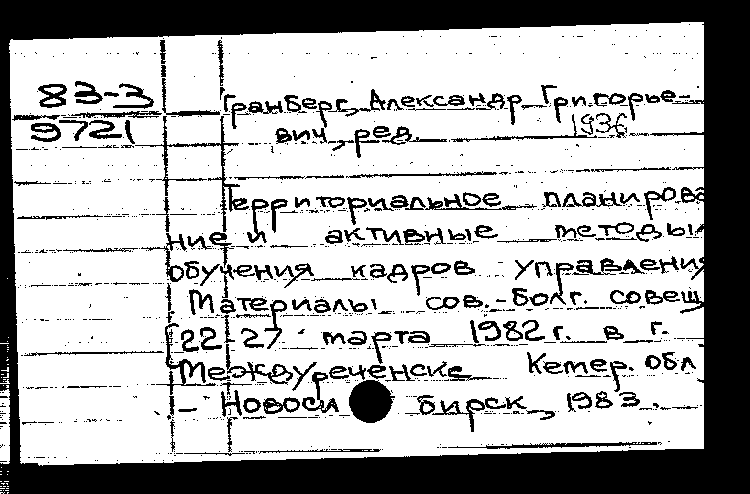 83-3
9721
Гранберг, Александр Григорье-
вич, ред. 1936
Территориальное планирова
ние и активные методы
обучения кадров управления
Материалы сов.-болг. совещ
[22-27 марта 1982 г. в г.
Междуреченске Кемер. обл
- Новосибирск, 1983.